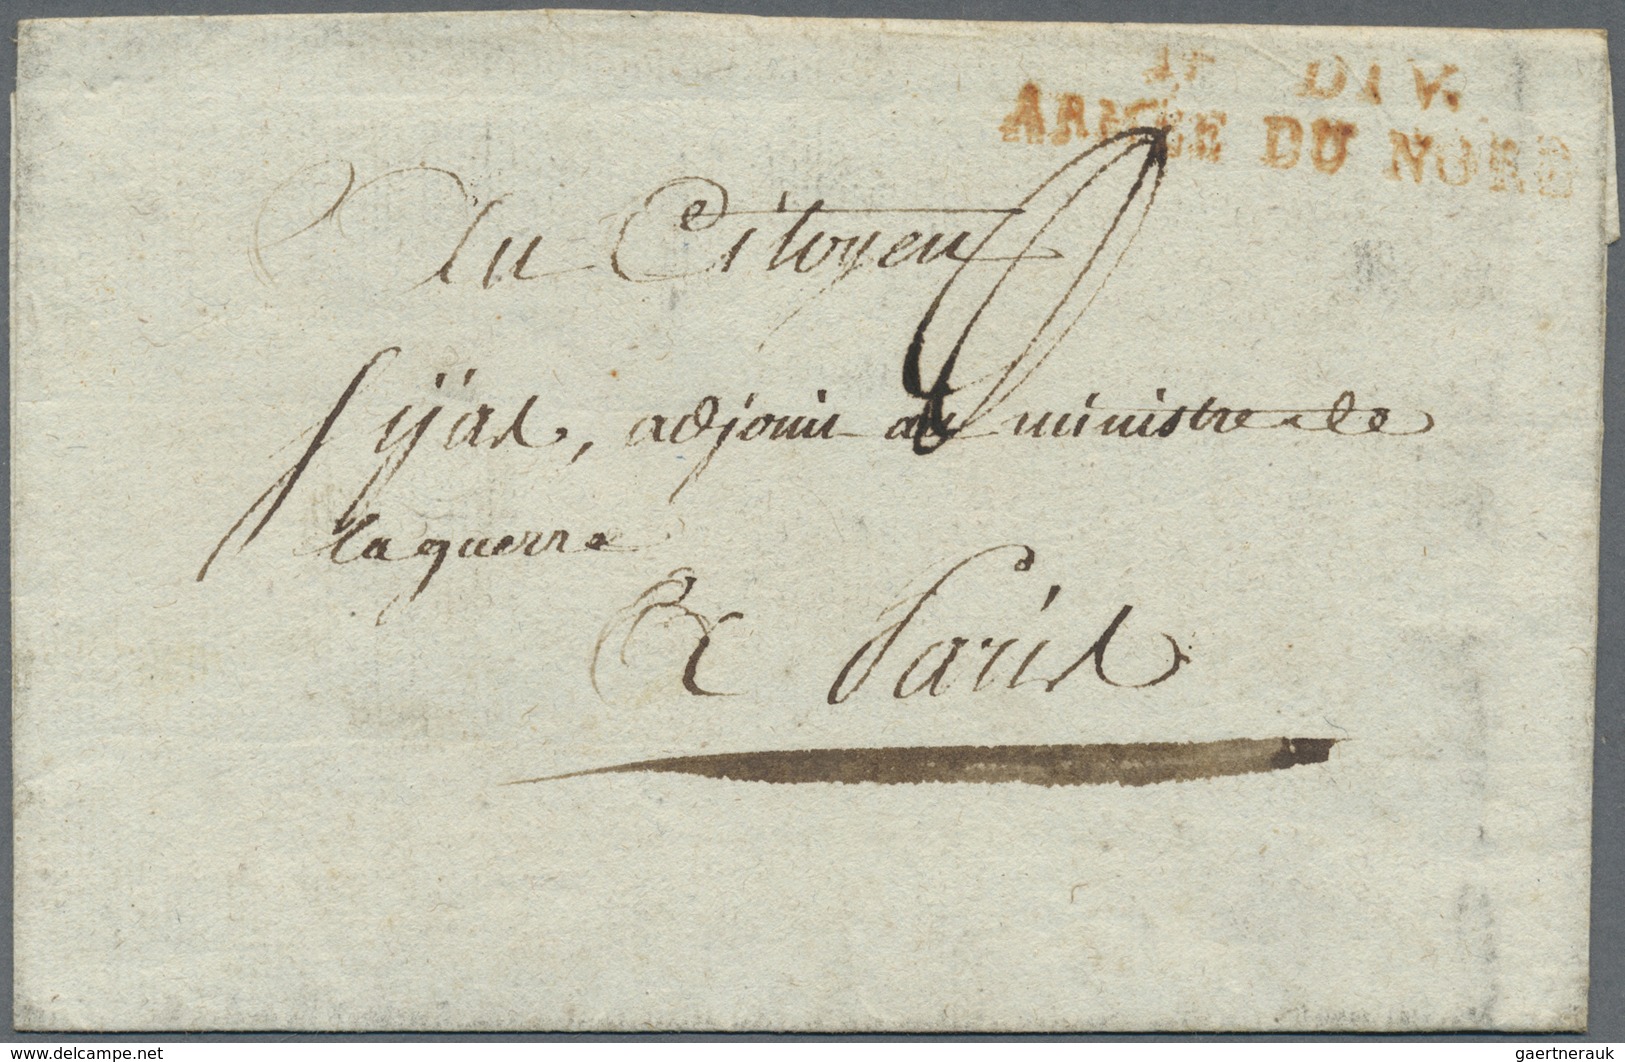 1e DIV.
ARMEE DU NORD
Au Citoyen
Sijas, adjoint au ministre de
la guerre
A Paris
delcampe.net
gaertnerauk